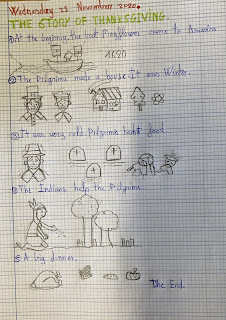 Wednesday 25 November 2020.
THE STORY OF THANKSGIVING.
① At the beginnig, the boat Mayflower came to America
1620
② The Pilgrims made a house. It was Winter.
③ It was very cold. Pilgrims hunt food.
④ The Indians help the Pilgrims.
⑤ A big dinner.
The End.